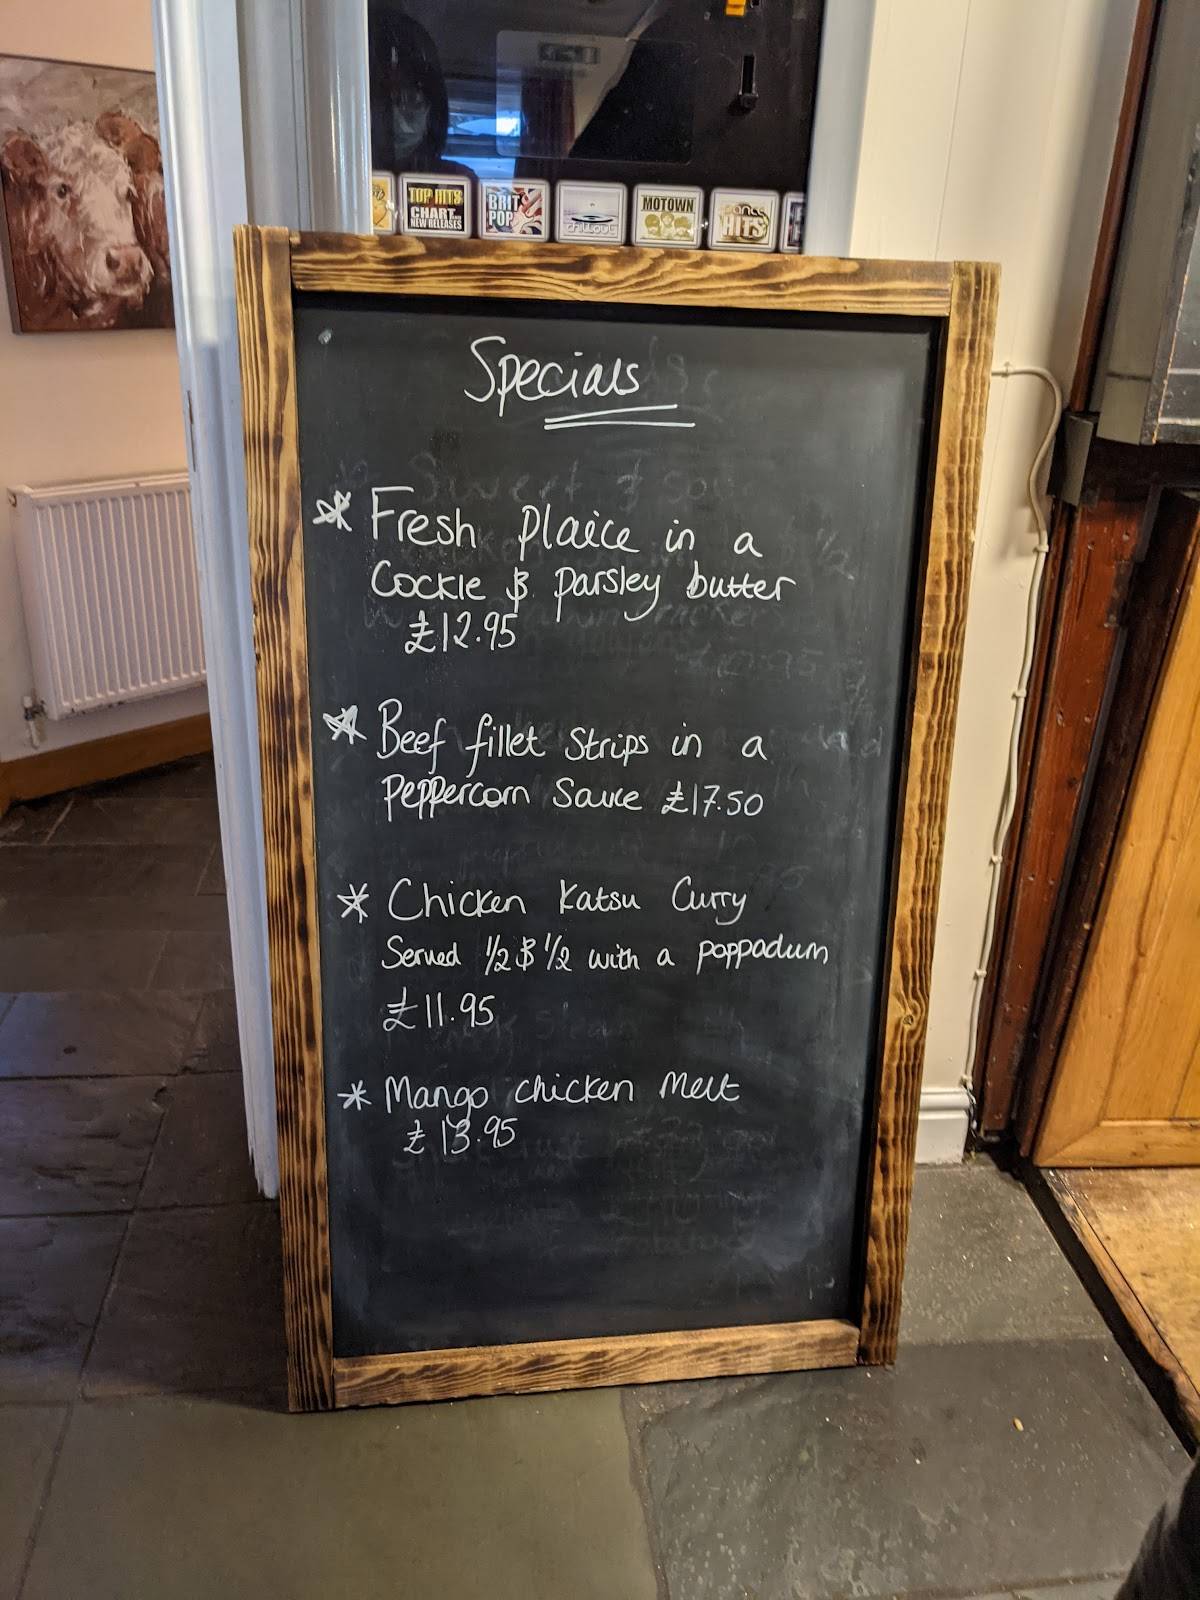 TOP HITS
CHART AND
NEW RELEASES
BRIT
POP
chillout
MOTOWN
dance
HITS
Specials
* Fresh Plaice in a
Cockle & parsley butter
£12.95
* Beef fillet Strips in a
Peppercorn Sauce £17.50
* Chicken Katsu Curry
Served 1/2 & 1/2 with a poppadum
£11.95
* Mango chicken Melt
£13.95